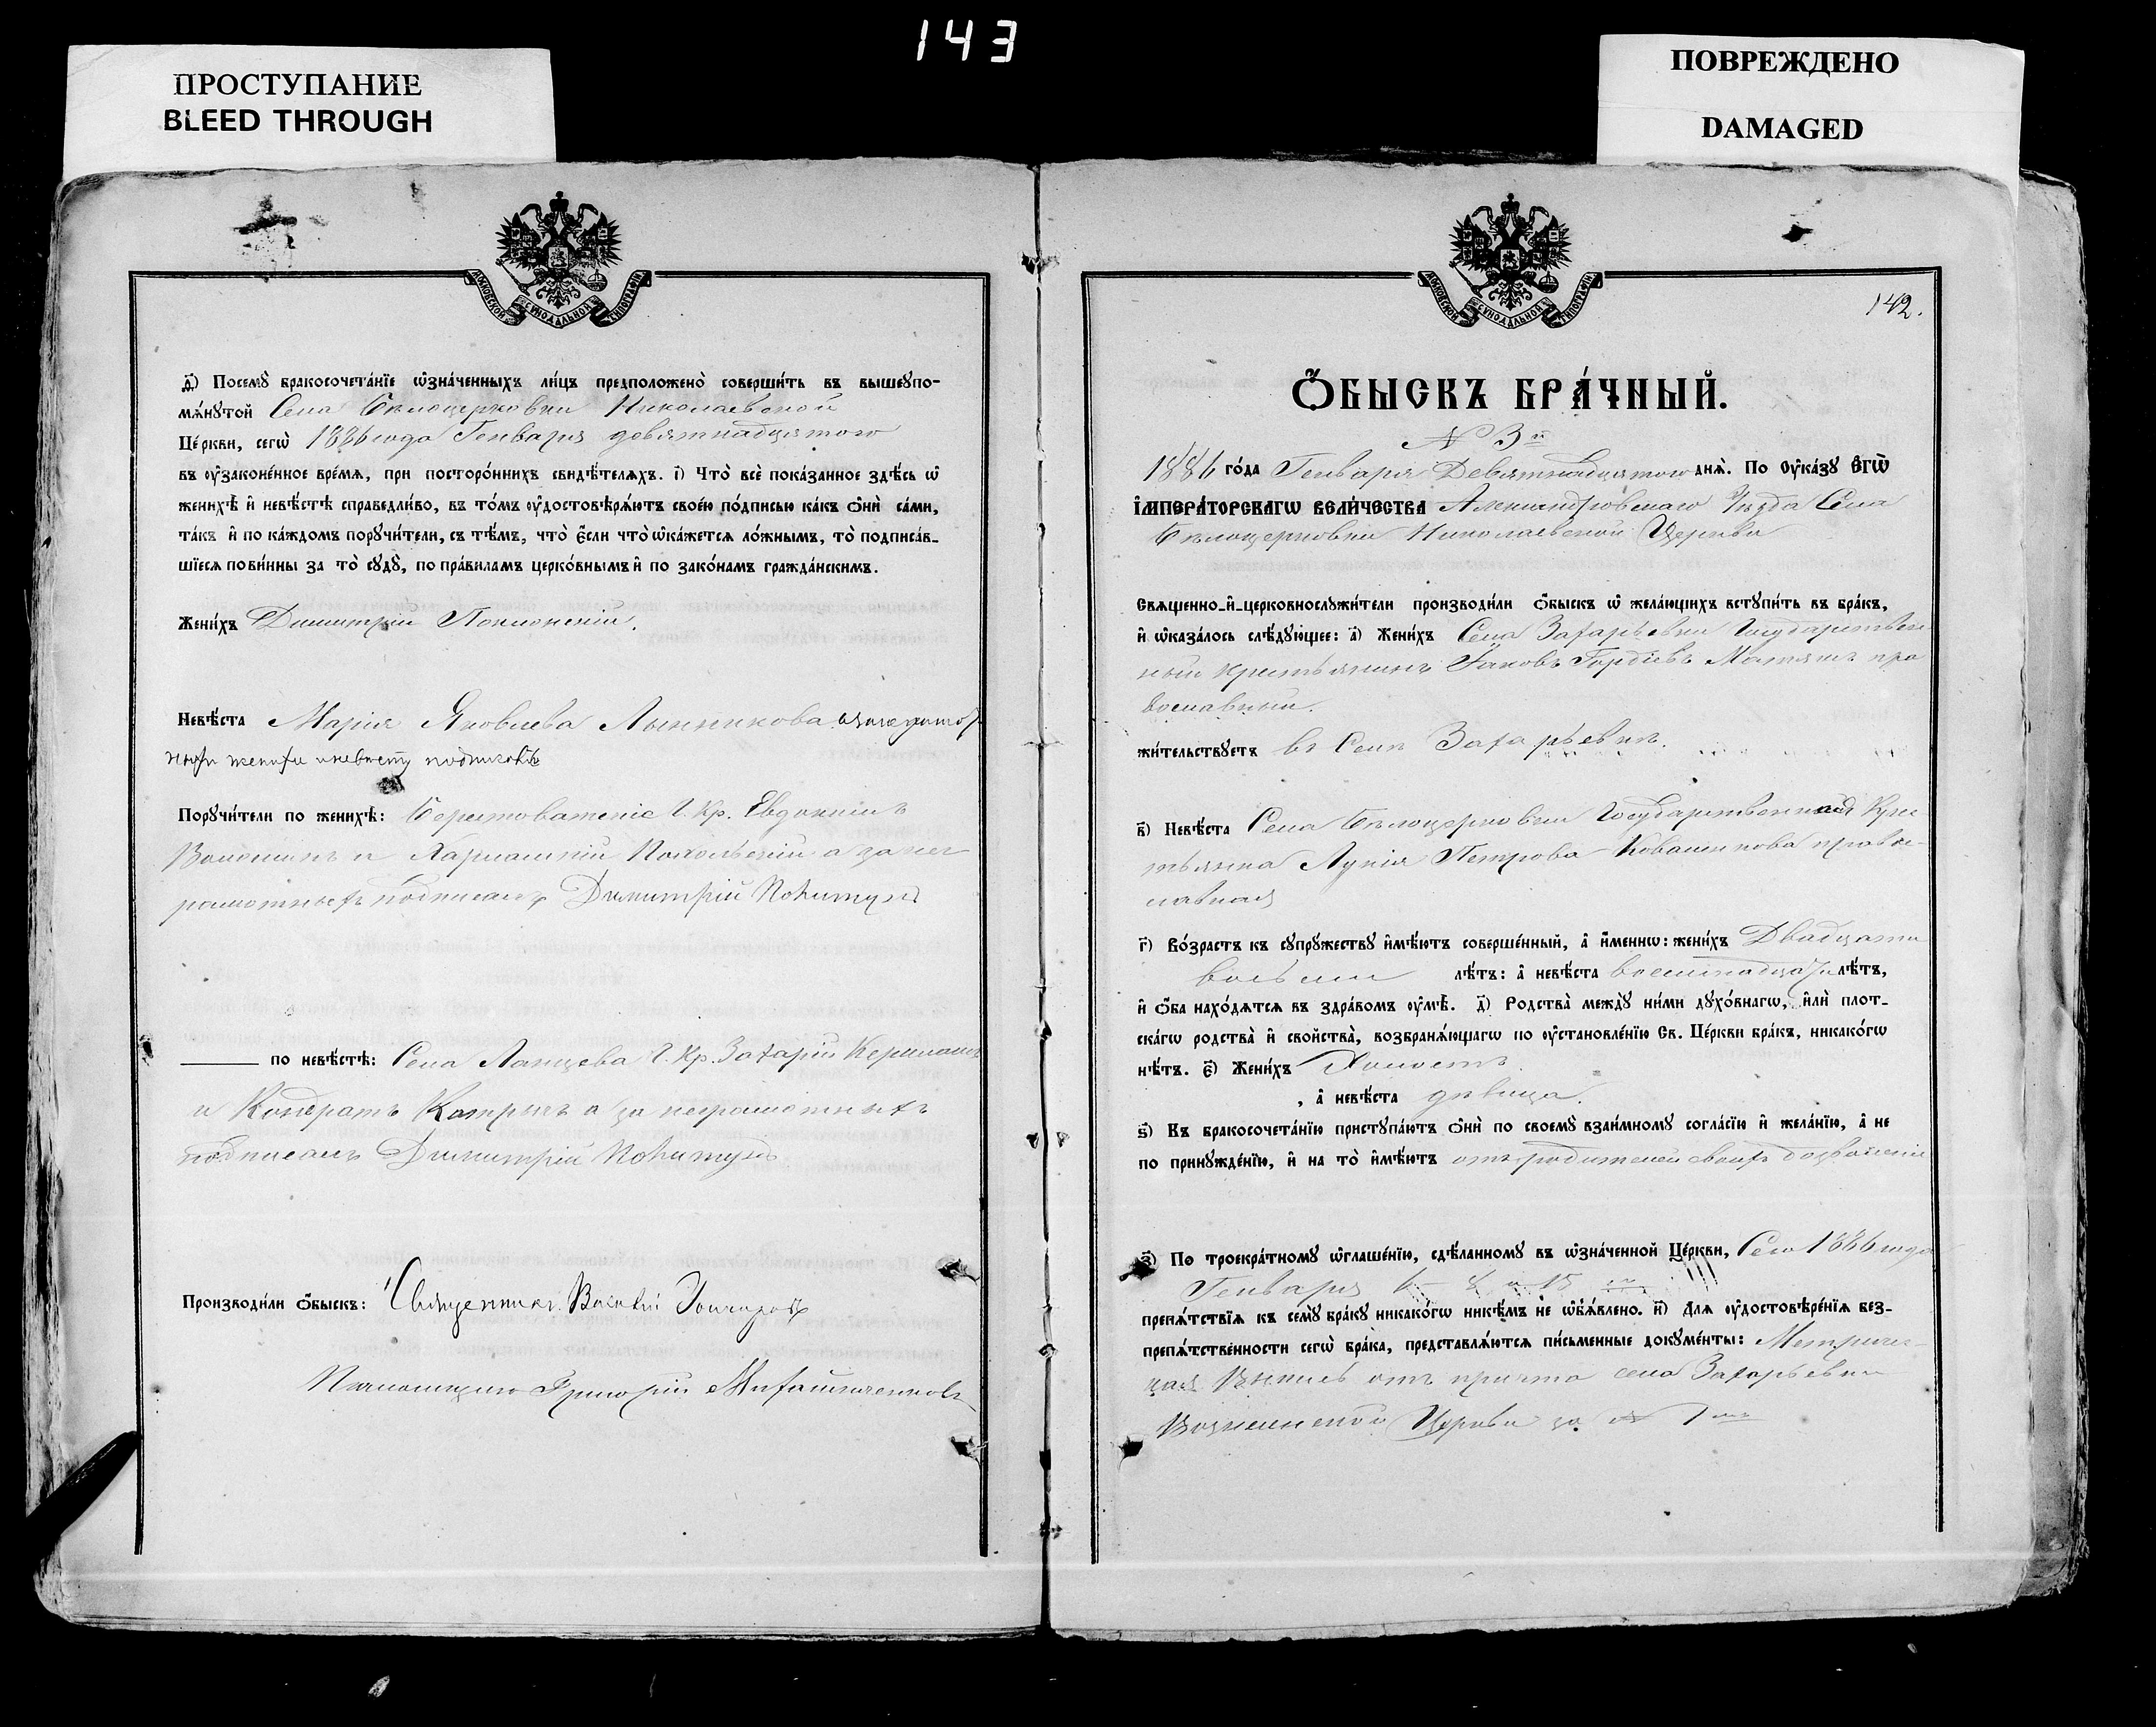 143
ПРОСТУПАНИЕ
BLEED THROUGH
ПОВРЕЖДЕНО
DAMAGED
МОСКОВСКОЙ СУНОДАЛЬНОЙ ТИПОГРАФІИ
д҃) Посемꙋ̀ бракосочета́нїе ѡ҆зна́ченныхъ ли́цъ предположено̀ соверши́ть въ вышеꙋпо-
мѧ́нꙋтой Села Бѣлоцерковки Николаевской
Це́ркви, сегѡ̀ 1886 года Генваря девятнадцатого
въ ᲂу҆законе́нное вре́мѧ, при посторо́ннихъ свидѣ́телѧхъ. і҃) Что̀ всѐ пока́занное здѣ́сь ѡ҆
женихѣ̀ и҆ невѣ́стѣ справедли́во, въ то́мъ ᲂу҆достовѣрѧ́ютъ свое́ю по́дписью ка́къ ѻ҆нѝ са́ми,
та́къ и҆ по ка́ждомъ порꙋчи́тели, съ тѣ́мъ, что̀ є҆́сли что̀ ѡ҆ка́жетсѧ ло́жнымъ, то̀ подписа́в-
шїесѧ пови́нны за то̀ сꙋдꙋ̀, по пра́виламъ церко́внымъ и҆ по зако́намъ гражда́нскимъ.
Жени́хъ Димитрій Поклонскій.
Невѣ́ста Марія Яковлева Лынникова
жениха и невесту подписалъ
Порꙋчи́тели по женихѣ̀: Г. Кр. Евдокимъ
Волошинъ и а за нег
рамотныхъ подписалъ Димитрій
по невѣ́стѣ: Села Ланцева Г. Кр. Захарій
и Кондратъ а за неграмотныхъ
подписалъ Димитрій
Производи́ли ѻ҆́быскъ: Священникъ Василій Гончаровъ
Псаломщикъ Григорій
142.
Ѻ҆́БЫСКЪ БРА́ЧНЫЙ.
№ 3й
1886 го́да Генваря Девятнадцатого днѧ̀. По ᲂу҆ка́зꙋ Є҆Гѡ̀
І҆МПЕРА́ТОРСКАГѠ ВЕЛИ́ЧЕСТВА Александровскаго Уѣзда Села
Бѣлоцерковки Николаевской Церкви
Свѧщенно-и҆-церковнослꙋжи́тели производи́ли ѻ҆́быскъ ѡ҆ жела́ющихъ встꙋпи́ть въ бра́къ,
и҆ ѡ҆каза́лось слѣ́дꙋющее: а҃) Жени́хъ Села Захарьевки Государствен
ный крестьянинъ Іаковъ Гордіевъ пра
вославный.
жи́тельствꙋетъ въ Селѣ Захарьевкѣ.
в҃) Невѣ́ста Села Бѣлоцерковки Государственная Крес
тьянка Лукія Петрова Коваленкова право
славная
г҃) Во́зрастъ къ сꙋпрꙋ́жествꙋ и҆мѣ́ютъ соверше́нный, а҆ и҆́меннѡ: жени́хъ Двадцати
восьми лѣ́тъ: а҆ невѣ́ста восемнадцати лѣ́тъ,
и҆ ѻ҆́ба нахо́дѧтсѧ въ здра́вомъ ᲂу҆мѣ̀. д҃) Родства̀ междꙋ̀ ни́ми дꙋхо́внагѡ, и҆лѝ плот-
ска́гѡ родства̀ и҆ сво́йства, возбранѧ́ющагѡ по ᲂу҆становле́нїю Св. Це́ркви бра́къ, никако́гѡ
нѣ́тъ. є҃) Жени́хъ Холостъ
, а҆ невѣ́ста дѣвица.
ѕ҃) Къ бракосочета́нїю пристꙋпа́ютъ ѻ҆нѝ по своемꙋ̀ взаи́мномꙋ согла́сїю и҆ жела́нїю, а҆ не
по принꙋжде́нїю, и҆ на то̀ и҆мѣ́ютъ отъ родителей своихъ дозволеніе
з҃) По троекра́тномꙋ ѡ҆глаше́нїю, сдѣ́ланномꙋ въ ѡ҆зна́ченной Це́ркви, Сего 1886 года
Генваря 6 8 и 15
препѧ́тствїѧ къ семꙋ̀ бра́кꙋ никако́гѡ никѣ́мъ не ѡ҆б̾ѧ́влено. и҃) Длѧ ᲂу҆достовѣре́нїѧ без-
препѧ́тственности сегѡ̀ бра́ка, представлѧ́ютсѧ пи́сьменные докꙋме́нты: Метричес-
кая Выпись отъ причта села Захарьевки
Вознесенской Церкви за №